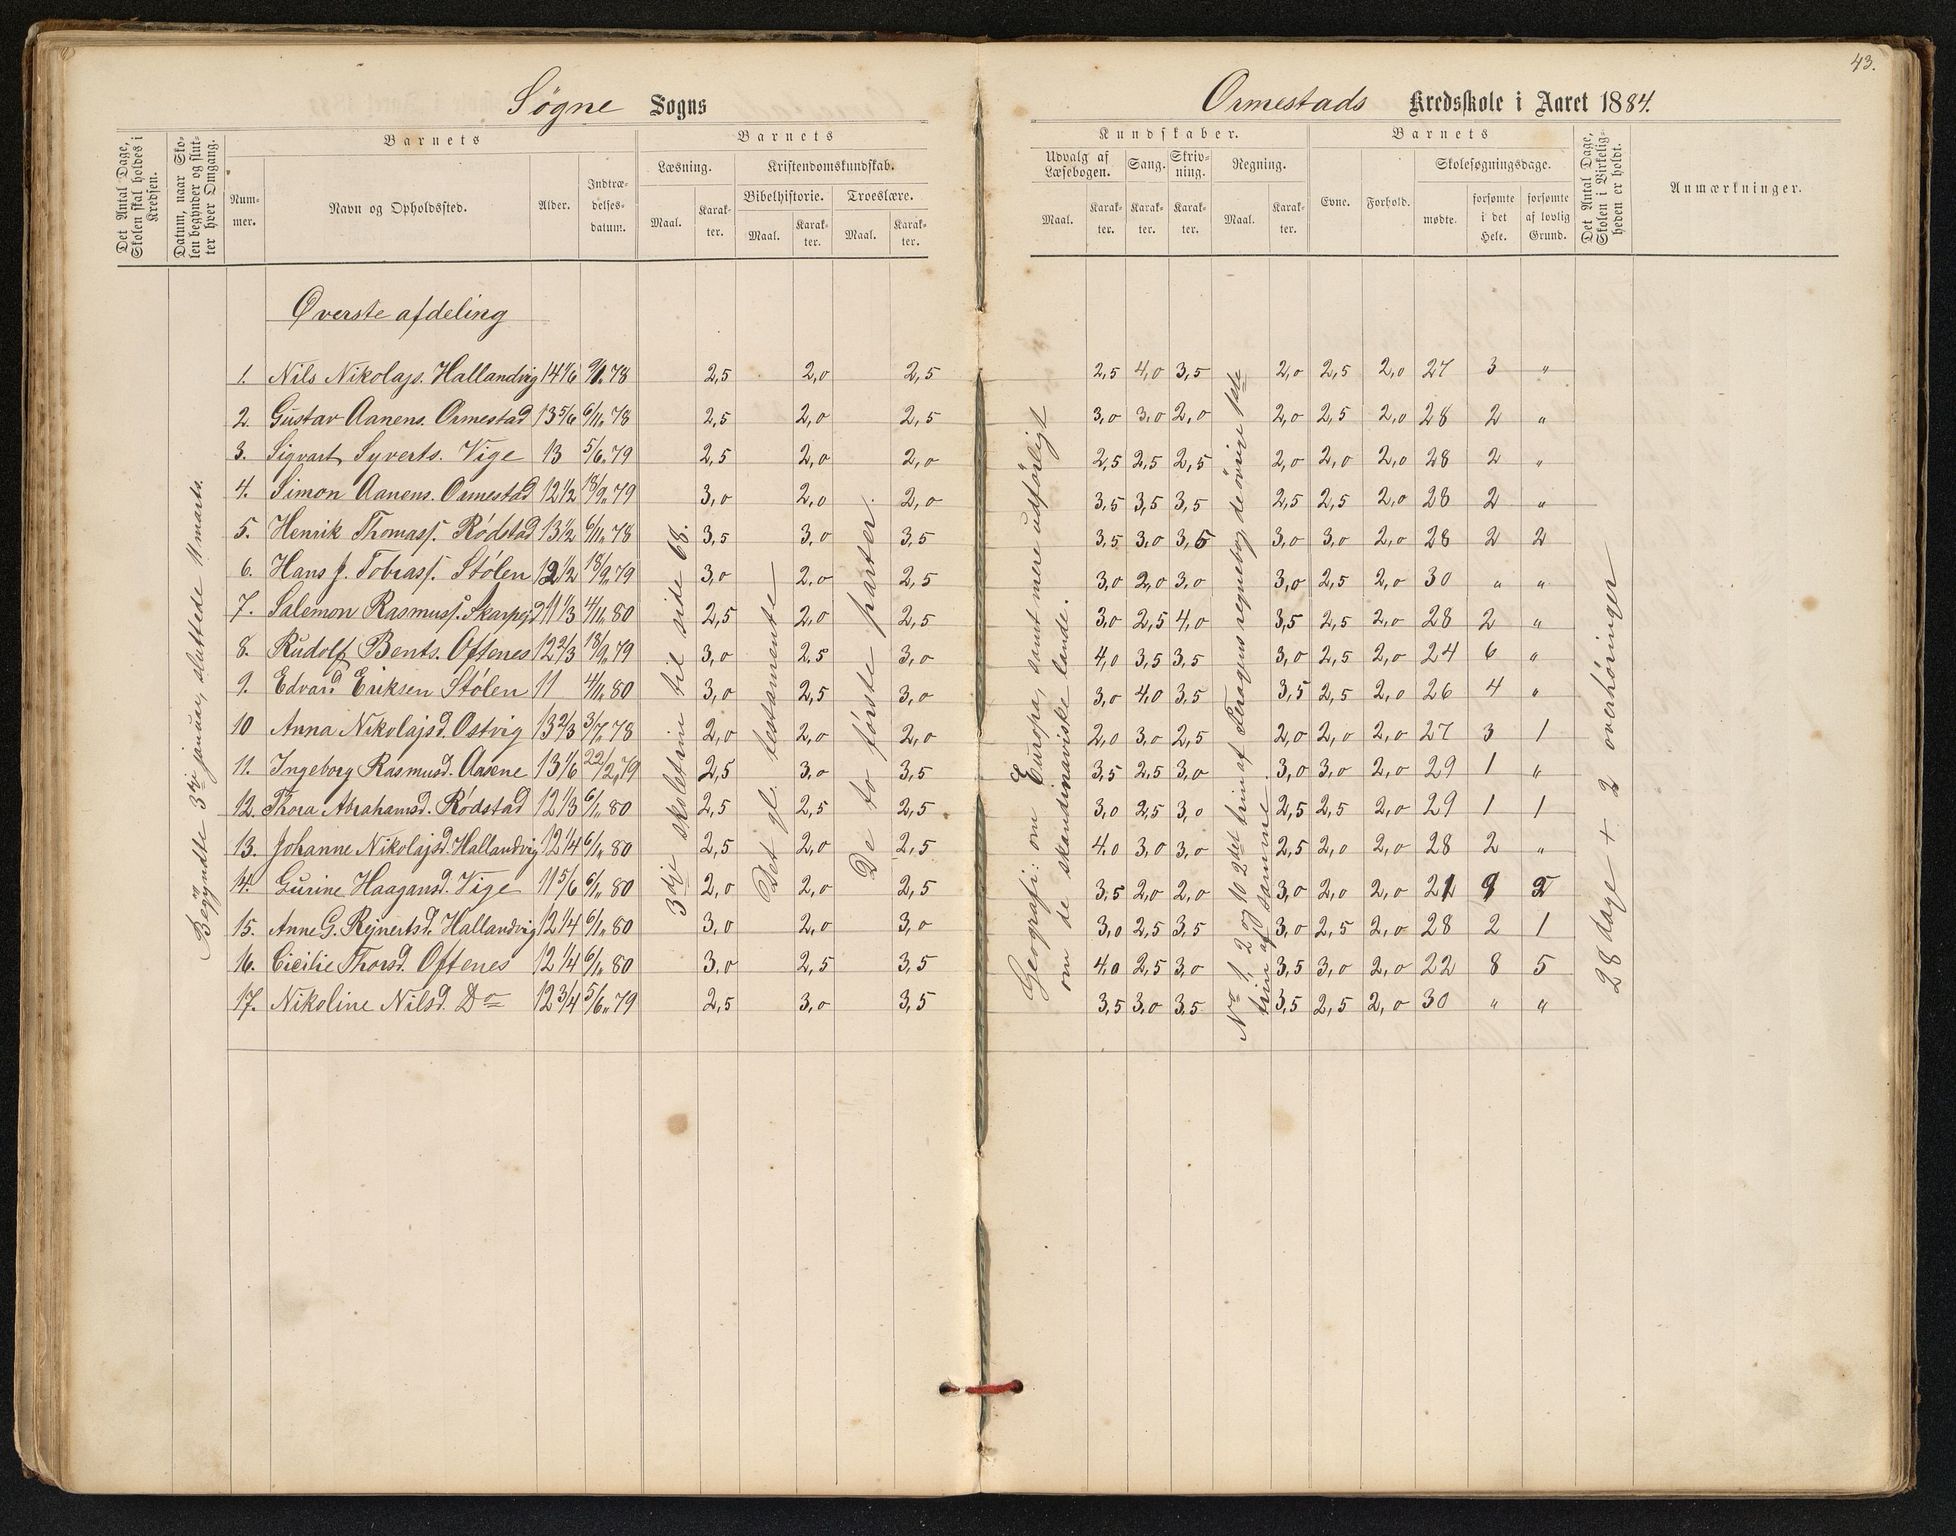 43.
Søgne Sogns
Ormestads Kredsskole i Aaret 1884.
Det Antal Dage, Skolen skal holdes i Kredsen.
Datum, naar Skolen begynder og slutter hver Omgang.
Barnets
Nummer.
Navn og Opholdssted.
Alder.
Indtrædelsesdatum.
Barnets
Læsning.
Maal.
Karakter.
Kristendomskundskab.
Bibelhistorie.
Maal.
Karakter.
Troeslære.
Maal.
Karakter.
Kundskaber.
Udvalg af Læsebogen.
Maal.
Karakter.
Sang.
Karakter.
Skrivning.
Karakter.
Regning.
Maal.
Karakter.
Barnets
Evne.
Forhold.
Skolesøgningsdage.
mødte.
forsømte i det Hele.
forsømte af lovlig Grund.
Det Antal Dage, Skolen i Virkeligheden er holdt.
Anmærkninger.
Øverste afdeling
1. Nils Nikolajs. Hallandvig 14 1/6 78 2,5 2,0 2,5 2,5 4,0 3,5 2,0 2,5 2,0 27 3 "
2. Gustav Aanens. Ormestad 13 5/6 6/11 78 2,5 2,0 2,5 3,0 3,0 2,0 2,0 2,5 2,0 28 2 "
3. Sigvart Syverts. Vige 13 5/6 79 2,5 2,0 2,0 2,5 2,5 2,5 2,0 2,0 2,0 28 2 "
4. Simon Aanens. Ormestad 12 1/2 18/9 79 3,0 2,0 2,0 3,5 3,5 3,5 2,5 2,5 2,0 28 2 "
5. Henrik Thomass. Rødstad 13 1/2 6/11 78 3,5 3,0 3,5 3,5 3,0 3,5 3,0 3,0 2,0 28 2 2
6. Hans J. Tobiass. Stølen 12 1/2 18/9 79 3,0 2,0 2,5 3,0 2,0 3,0 3,0 2,5 2,0 30 " "
7. Salemon Rasmuss. Skarpejd 11 1/3 4/11 80 2,5 2,0 2,5 3,0 2,5 4,0 3,5 2,5 2,0 28 2 "
8. Rudolf Bents. Oftenes 12 2/3 18/9 79 3,0 2,5 3,0 4,0 3,5 3,5 3,0 2,5 2,0 24 6 "
9. Edvard Eriksen Stølen 11 4/11 80 3,0 2,5 3,0 3,0 4,0 3,5 3,5 2,5 2,0 26 4 "
10 Anna Nikolajsd. Ostvig 13 2/3 3/7 78 2,0 2,0 2,0 2,0 3,0 2,5 2,0 2,0 2,0 27 3 1
11. Ingeborg Rasmusd. Aasene 13 1/6 22/2 79 2,5 3,0 3,5 3,5 2,5 3,0 3,0 3,0 2,0 29 1 "
12. Thora Abrahamsd. Rødstad 12 1/3 6/1 80 2,5 2,5 2,5 3,0 2,5 3,0 2,5 2,5 2,0 29 1 1
13. Johanne Nikolajsd. Hallandvig 12 1/4 6/1 80 2,5 2,0 2,5 4,0 3,0 3,0 2,5 2,0 2,0 28 2 "
14. Gurine Haagansd. Vige 11 5/6 6/1 80 2,0 2,0 2,5 3,5 2,0 2,0 3,0 2,0 2,0 21 9
15. Anne G. Rejnertsd. Hallandvig 12 1/4 6/1 80 3,0 2,0 3,0 3,0 2,5 3,5 3,0 2,5 2,0 28 2 1
16. Cicilie Thorsd. Oftenes 12 1/4 6/1 80 3,0 2,5 3,5 4,0 2,5 3,0 3,5 3,0 2,0 22 8 5
17. Nikoline Nilsd. Do 12 3/4 5/6 79 2,5 3,0 3,5 3,5 3,0 3,5 3,5 2,5 2,0 30 " "
Begyndte 3die januar, sluttede 11 marts.
3die skoletrin til side 68.
Det gl. testamente
De to første parter.
Geografi: om Europa, samt mere udførligt
om de skandinaviske lande.
No 1, 2 og 10 2det trin af regnebog, de øvrige 1ste
trin af samme.
28 dage + 2 overhøringer